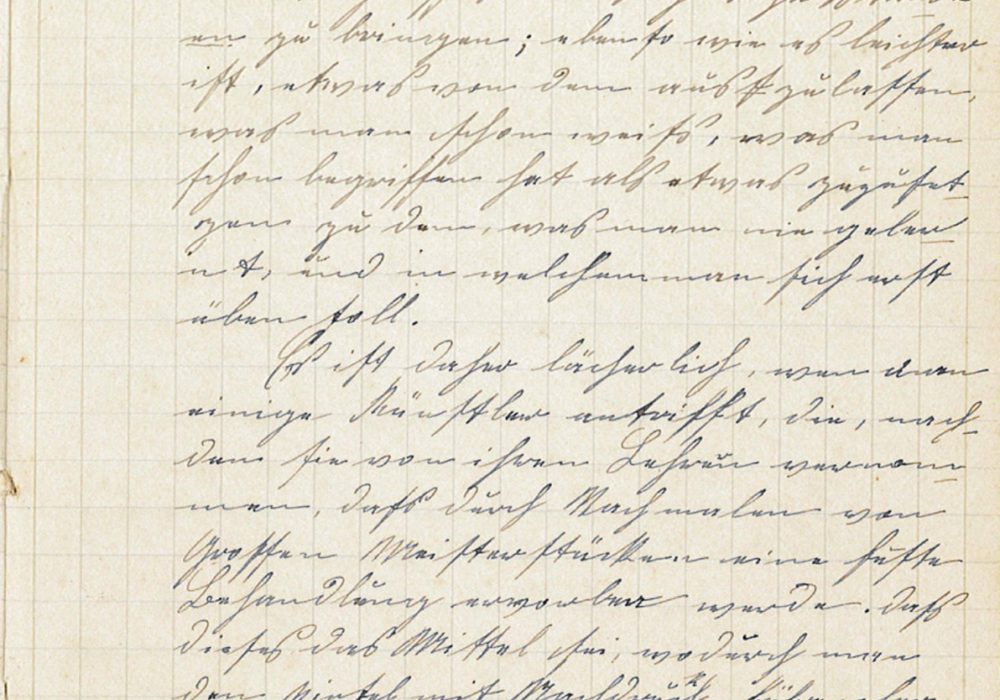 en zu bringen; ebenso wie es leichter
ist, etwas von dem auszulassen,
was man schon weiß, was man
schon begriffen hat als etwas zuzuset-
zen zu dem, was man nie geler-
nt, und in welchem man sich erst
üben soll.
Es ist daher lächerlich, wen man
einige Künstler antrifft, die, nach-
dem sie von ihren Lehren vernom-
men, daß durch Nachmalen von
Großen Meisterstücken eine feste
Behandlung erworben werde. daß
dieses das Mittel sei, wodurch man
den mit Nachdruck